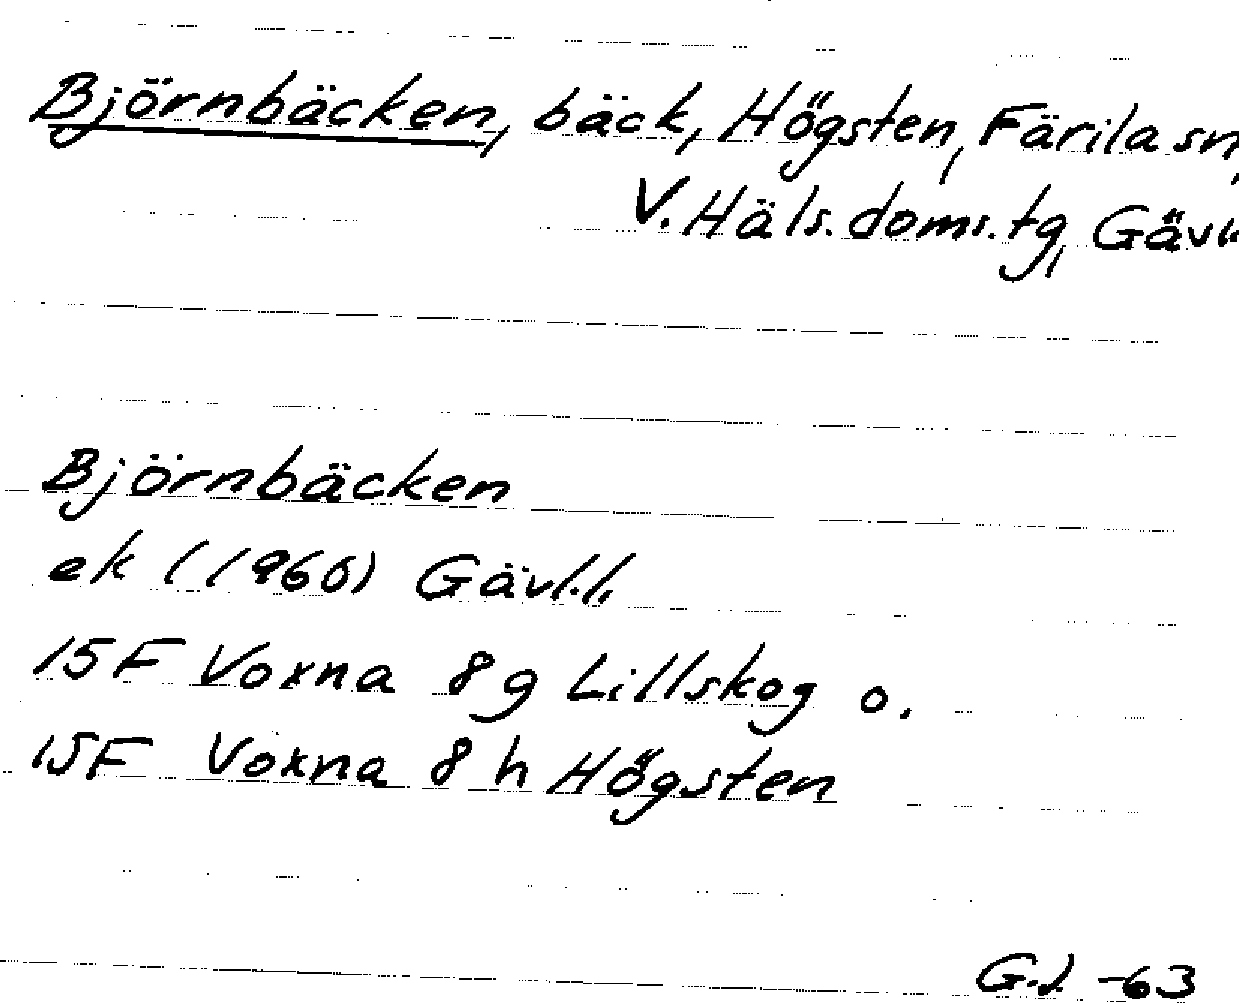 Björnbäcken, bäck, Högsten, Färila sn,
V. Häls. doms. tg, Gävl.
Björnbäcken
ek (1960) Gävl.l.
15F Voxna 8g Lillskog o.
15F Voxna 8h Högsten
-63